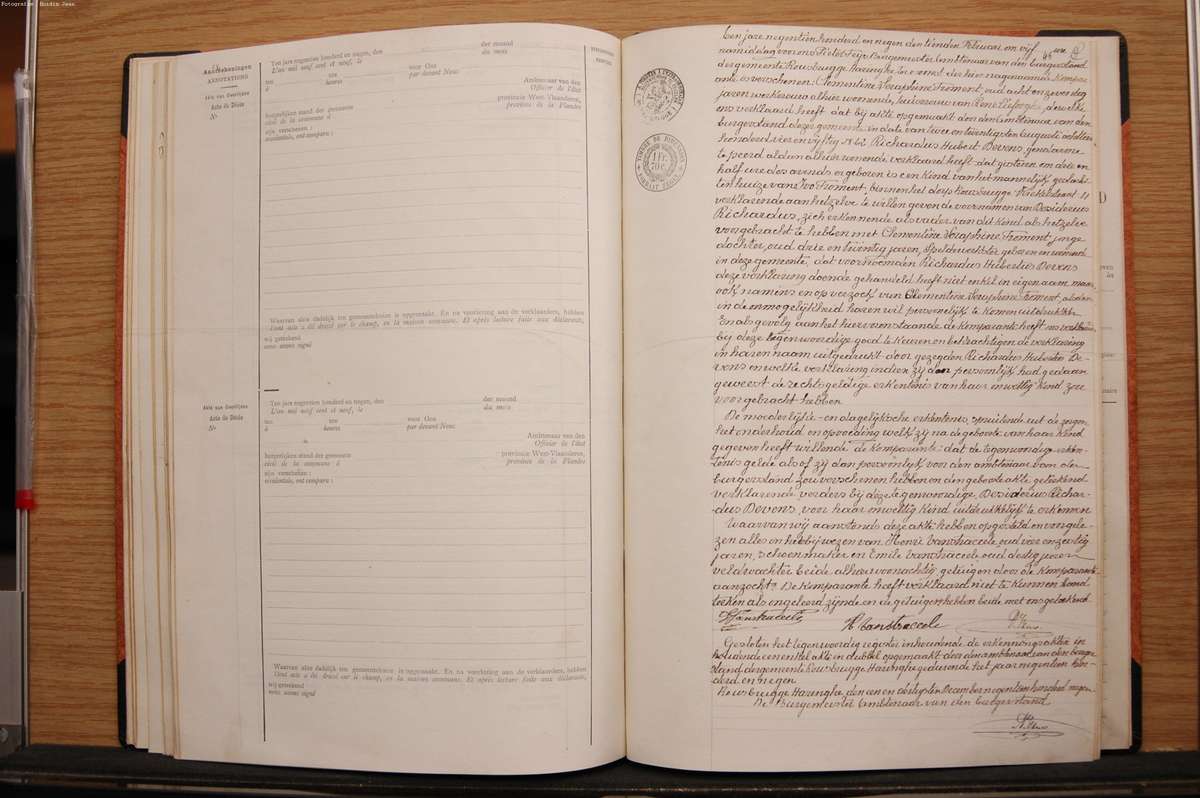 Fotografie : Houdin Jean
Aanteekeningen
ANNOTATIONS
Akte van Overlijden
Acte de Décès
N°
Ten jare negentien honderd en negen, den
der maand
L'an mil neuf cent et neuf, le
du mois
ten
ure
voor Ons
à
heures
par devant Nous
Ambtenaar van den
Officier de l'État
burgerlijken stand der gemeente
provincie West-Vlaanderen,
civil de la commune à
province de la Flandre
zijn verschenen :
ont comparu :
Waarvan akte dadelijk ten gemeentehuize is opgemaakt. En na voorlezing aan de verklaarders, hebben
Dont acte a été dressé sur le champ, en la maison commune. Et après lecture faite aux déclarants,
wij geteekend
avons signé
Akte van Overlijden
Acte de Décès
N°
Ten jare negentien honderd en negen, den
der maand
L'an mil neuf cent et neuf, le
du mois
ten
ure
voor Ons
à
heures
par devant Nous
Ambtenaar van den
Officier de l'État
burgerlijken stand der gemeente
provincie West-Vlaanderen,
civil de la commune à
province de la Flandre
zijn verschenen :
ont comparu :
Waarvan akte dadelijk ten gemeentehuize is opgemaakt. En na voorlezing aan de verklaarders, hebben
Dont acte a été dressé sur le champ, en la maison commune. Et après lecture faite aux déclarants,
wij geteekend
avons signé
Een jare negentien honderd en negen den tienden februari om vijf ure
namiddag voor ons Burgemeester Ambtenaar van den burgerstand
der gemeente Rousbrugge Haringhe is de hier nagenaamde Kompa-
rante verschenen : Clementine Seraphine Froment, oud acht en zeventig
jaren werkvrouw alhier woonende, huisvrouw van René dewelke
ons verklaard heeft dat bij akte opgemaakt door den Ambtenaar van den
burgerstand dezer gemeente in date van twee en twintigsten Augusti achttien
honderd vier en vijftig N° 62 Richardus Hubert Devens, gendarme
te peerd aldaan alhier wonende verklaard heeft dat gisteren om drie en
half ure des avonds er geboren is een kind van het mannelijk geslacht
ten huize van Ivo Froment, binnen het dorp Rousbrugge
verklarende aan hetzelve te willen geven de voornamen van Desiderius
Richardus, zich erkennende als vader van dit kind als hetzelve
voorgebracht te hebben met Clementine Seraphine Froment, jonge
dochter, oud drie en twintig jaren, speldewerkster geboren en wonend
in deze gemeente, dat voornoemden Richardus Hubertus Devens
deze verklaring doende gehandeld heeft niet enkel in eigen naam maar
ook namens en op verzoek van Clementine Seraphine Froment, alsdan
in de onmogelijkheid haren wil persoonelijk te komen uitdrukken
En als gevolg aan het hiervorenstaande de Komparante heeft ons verklaard
bij deze tegenwoordige goed te keuren en bekrachtigen de verklaring
in haren naam uitgedrukt door gezegden Richardus Hubertus De-
vens en welke verklaring indien zij dan persoonlijk had gedaan
geweest de rechtsgeldige erkentenis van haar onwettig kind zou
voorgebracht hebben.
De moederlijke en dagelijksche erkentenis spruitende uit de zorgen
het onderhoud en opvoeding welk zij na de geboorte aan haar kind
gegeven heeft willende de Komparante dat de tegenwoordige erken-
tenis gelde alsof zij dan persoonlijk voor den ambtenaar van den
burgerstand zou verschenen hebben en den geboorteakte geteekend
verklarende vorders bij deze tegenwoordige, Desiderius Richar-
dus Devens, voor haar onwettig kind uitdrukkelijk te erkennen
Waarvan wij aanstonds deze akte hebben opgesteld en voorgele-
zen alles in het bijwezen van Henri Vanstraceele oud vier en zestig
jaren, schoenmaker en Emile Vanstraceele oud dertig jaren
veldwachter beide alhier woonachtig, getuigen door de Komparante
aanzocht. De Komparante heeft verklaard niet te kunnen hand-
teeken als ongeleerd zijnde en de getuigen hebben beide met ons geteekend
Vanstraceele
H Vanstraceele
Gesloten het tegenwoordig register inhoudende de erkenningsakten in
houdende eene enkel akte in dubbel opgemaakt door den ambtenaar van den burger-
stand der gemeente Rousbrugge Haringhe gedurende het jaar negentien hon-
derd en negen
Rousbrugge Haringhe den een en dertigsten December negentien honderd negen
De Burgemeester Ambtenaar van den burgerstand